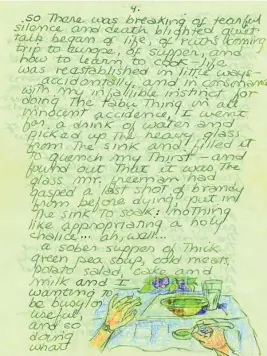 4.
.so There was breaking of tearful
silence and death blighted quiet
talk began of life, of ruth's coming
trip to Europe, of supper, and
how to learn to cook - life
was reestablished in little ways -
accidentally, and in consonance
with my infallible instinct for
doing the tabu Thing in all
innocent accidence, I went
for a drink of water and
picked up the heavy glass
from The sink and filled it
to quench my Thirst - and
found out That it was The
glass mr. freeman had
gasped a last shot of brandy
from before dying, put in
The sink to soak: (nothing
like appropriating a holy
chalice... ah, well...
a sober supper of Thick
green pea soup, cold meats,
potato salad, cake and
milk and I
wanting to
be busy or
useful,
and so
doing
what